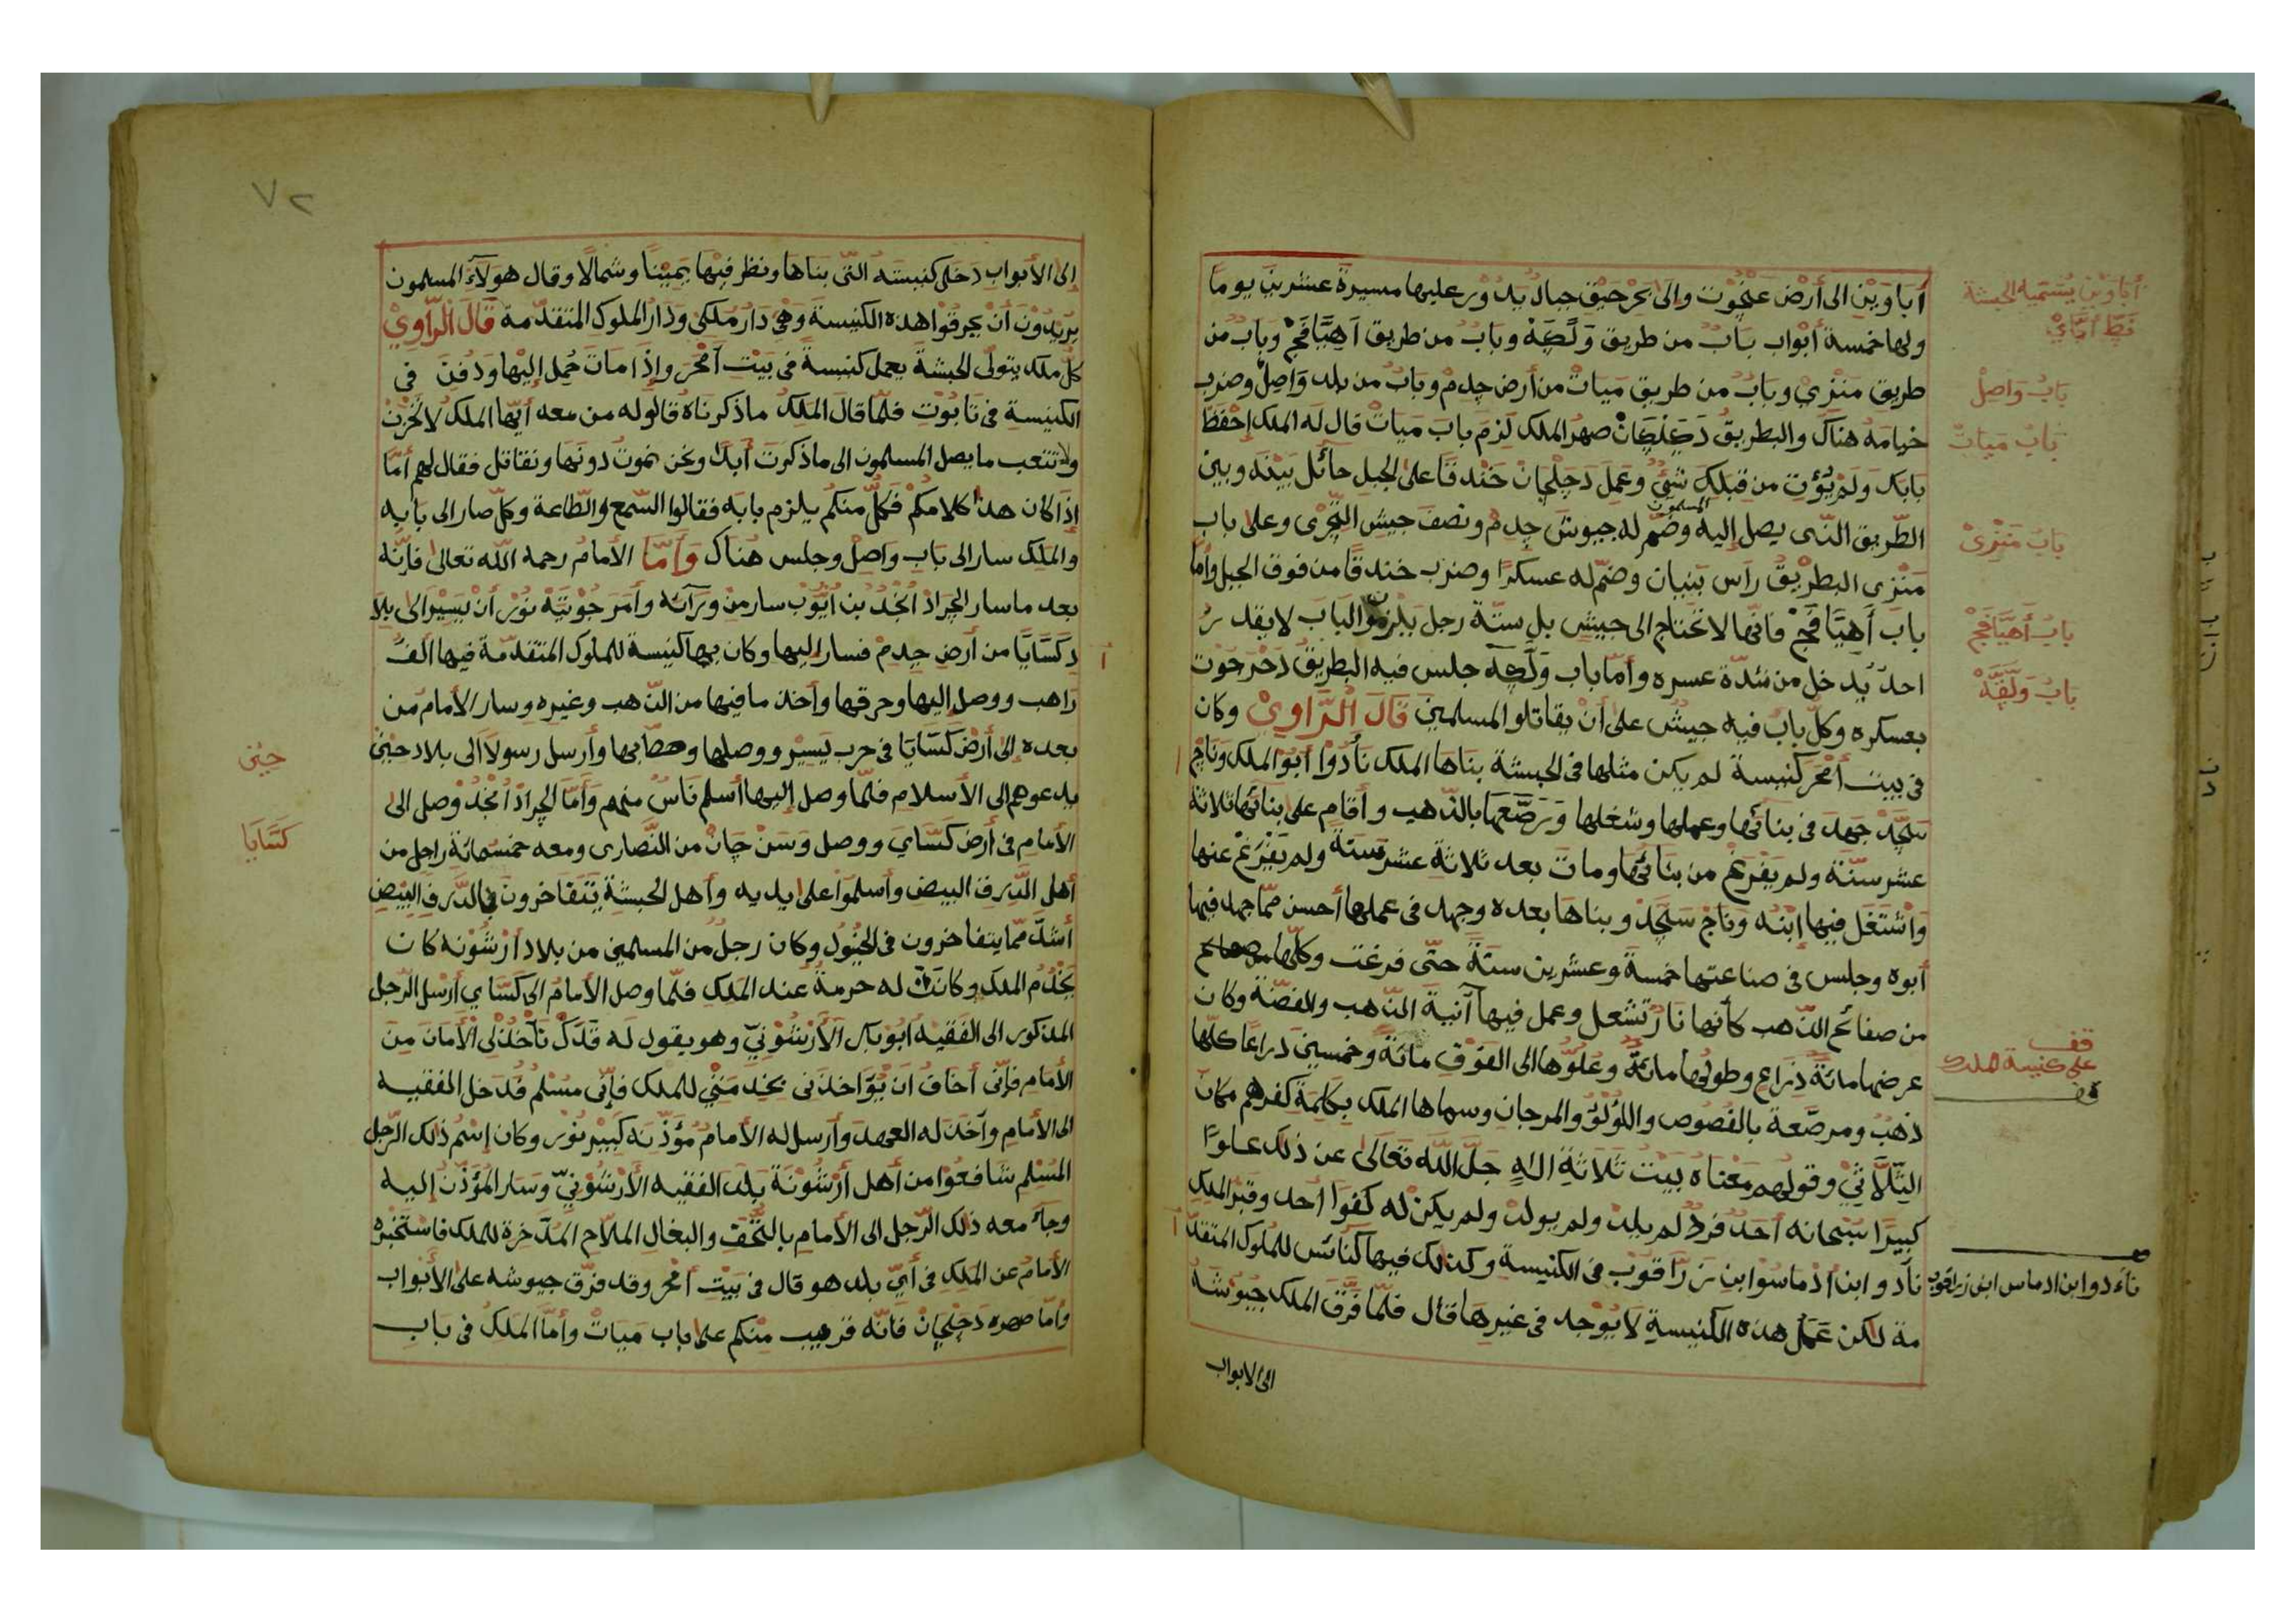 أَبَاوَيْن الى أرْض عنجُوت والى بَحْر حَيْق جبال يَدُوْر عليها مسيرة عشرين يوما
ولها خمسة أبْواب بابٌ من طريق وَلَقَة وبابٌ من طريق أَهَيَّافَجْ وبابٌ من
طريق مَنْزِيْ وبابٌ من طريق مَيَاتْ من أرض جِدِمْ وبابٌ من بلد وَاصِلْ وضرب
خيامَهُ هناك والبطريقُ دَجَلْجَانْ صهر الملك لَزِمَ بابَ مَيَاتْ قال لَه الملك إحْفظ
بابك ولمْ يُؤْتِ من قِبَلِكَ شَيْءٌ وعَمِلَ دَجَلْجَانْ خَنْدقًا على الجبل حائل بَيْنَه وبين
الطّريق الذى يصل إليه المسلمون وضمّ له جيوشَ جِدِمْ ونصفَ جيش التِّجْرِى وعلى باب
مَنْزِى البطْريقُ رأس بَنِيات وضمّ له عسكرًا وضرب خندقًا من فوق الجبل وأمّا
باب أَهَيَّافَجْ فانّها لا تحْتاج الى جيش بل ستّة رجل يلْزمو الباب لا يقدر
احدٌ يُدخل من شدّة عسره وأمّا باب وَلَقَة جلس فيه البطريقُ دَخَرَجَوْت
بعسكره وكلّ بابٌ فيه جيشٌ على أنْ يقاتلو المسلمين قَالَ الْرَّاوِيْ وكان
فى بيت أمْحَرَ كنيسة لم يكن مثلها فى الحبشة بناها الملك نأدُوْا أبُوْ الملك وناجْ
سَجَدْ جَهِدَ فى بنائها وعملها وشغلها وَرَصَّعَها بالذّهب وأقام على بنائها ثلاثة
عشر سنَة ولم يَفْرغ من بنائها وماتَ بعد ثلاثة عشر سنَة ولم يَفْرَغْ عنها
وَاشْتَغَل فيها إبْنُه وَنَاجْ سَجَدْ وبناها بعده وجهد فى عملها أحسن ممّا جهد فيها
أبوه وجلس فى صناعتها خمسة وعشرين سنَةً حتّى فرغت وكلّها
من صفائح الذّهب كأنّها نارٌ تشعل وعمل فيها آنية الذّهب والفضّة وكان
عرضها مائةُ ذِرَاعٍ وطولها مائةٌ وعُلُوُّها الى الفَوْق مائةٌ وخمسينَ ذراعًا كلّها
ذهَبٌ ومرصّعة بالفُصُوص واللؤلؤ والمرجان وسماها الملك بكلمة كفرهم مكانَ
الثلاثىْ وقولهم مَعْناه بيْتُ ثلاثةِ اله جَلَّ اللّه تَعَالَى عن ذلك علوًّا
كبيرًا سُبْحانه أحدٌ فردٌ لم يلد ولم يولد ولم يكن له كفوًا أحد وقبْر الملك
نأدو ابن أدْماسْوا بن زَرَّاقوْب فى الكنيسةِ وكذلك فيها كنائس للملوك المتقدّ
مة لكن عَمَل هذه الكَنيسةِ لا يُوْجد فى غيرها قال فلمّا فَرَّقَ الملك جيُوْشَهُ
الى الابواب
أباوَيْن يُسَمّيه الحبشة
بَابُ وَاصِلْ
بَابُ ميَاتْ
بابُ مَنْزِىْ
بابُ أَهَيَّافَجْ
بابُ وَلَقَةْ
قف
على كنيسة الملك
نأءدو ابن ادماس ابن زراقوب
٧٢
إلى الأبواب دَخَل كنيسَتَهُ التى بَنَاها ونظر فيْها يمِيْنًا وشمالًا وقال هؤلاء المسلمون
يُرِيْدُوْنَ أنْ يحرقوْا هذه الكَنِيسةَ وَهْىَ دَارُ مُلْكِىْ ودَارُ الملوك المتقدّمة قَالَ الْرَّاوِيْ
كلُّ ملك يتولّى الحبشَةَ يعمل كنيسةً فى بَيْتِ أَمْحَرَ وإذَا ماتَ حُمِل إليْها ودُفِنَ فى
الكنيسةِ فى تابُوْتٍ فلمّا قالَ الملِكُ ماذكرناهُ قالو له من معه أيُّها الملك لا تَحْزَنْ
ولا تتعب ما يصل المسلمون الى ما ذكرت أبدًا ونحن نموتُ دونَها ونقاتل فقال لهم أمّا
إذا كان هذا كلامكُم فكلّ منكم يلزم بابَه فقالوا السّمع والطّاعة وكلّ صار الى بابِه
والمَلِك سار الى بابِ واصِلْ وجلس هُنَاك وَأمَّا الأمامُ رحمه اللّه تعالى فإنّه
بعد ما سار الجَرَادْ أَحْمَدُ بن أيُّوب سار من ورائه وأمَرَ جُوْيْتَهْ نُوْر أنْ يَسِيْر الى بلاد
دكَسَّايَا من أرْضِ جِدِمْ فسار إليها وكان بها كنيسة للملوك المتقدّمة فيها ألفُ
رَاهب ووصل إليها وحرقها وأخذ ما فيها من الذّهب وغيره وسار الأمامُ من
بعده إلى أرْضِ كَسَّايَا فى حرب يَسِيْر ووصلها وحطّ بها وأرسل رسولًا الى بلاد جِبْنِى
يدعوهم إلى الأسلام فلمّا وصل إليها أسلم نَاسٌ منهم وَأمّا الجرادْ أحْمَدُ وصل الى
الأمام فى أرْضِ كَسَّاي ووصل وَسَنْ جَانْ من النَّصارى ومعه خمسمائة راجل من
أهل الدَّرق البيض وأسلموْا على يديه وأهل الحبشةِ يتَفَاخرونَ فى الدَّرق البِيْضِ
أشدّ ممّا يتفاخرون فى الخيُوْل وكان رجلٌ من المسلمين من بلاد أرْشُوْنه كان
يَخْدُم الملك وكانتْ له حرمة عند المَلِكِ فلمّا وصل الأمامُ الى كَسَّاي أرسل الرّجل
المذكور الى الفَقيْه أبُوْ بَكرِ الأرْشُوْنِىّ وهو يقول لَه قَدّكْ تأخذ لى الأمَانَ من
الأمام فإنّى أخافُ أن يُؤَاخذنى بخدمَتِىْ للملك فإنّى مُسْلم فَدخل الفقيه
الى الأمام وأخذ له العهدَ وأرسل له الأمامُ مُؤَذِّنَه كَبِيْر نُوْر وكان إسْمُ ذلك الرّجل
المُسْلم شافعُوْا من أهل أرْشُوْنَة بلد الفقيه الأرْشُوْنِىّ وسار المُؤَذّنُ إليه
وجاء معه ذلك الرّجل الى الأمامِ بالتُّحَف والبغال الملاح المُدَّخَرة للملك فاسْتَخْبَرَهُ
الأمامُ عن الملِك فى أىِّ بلد هو قال فى بَيْتِ أمْحَر وقد فرّق جيوشه على الأبْواب
وأمّا صهره دَجَلْجَانْ فانّه قريب منكم على باب مَيَاتْ وأمَّا الملكُ فى باب
جبْنى
كَسَّايَا